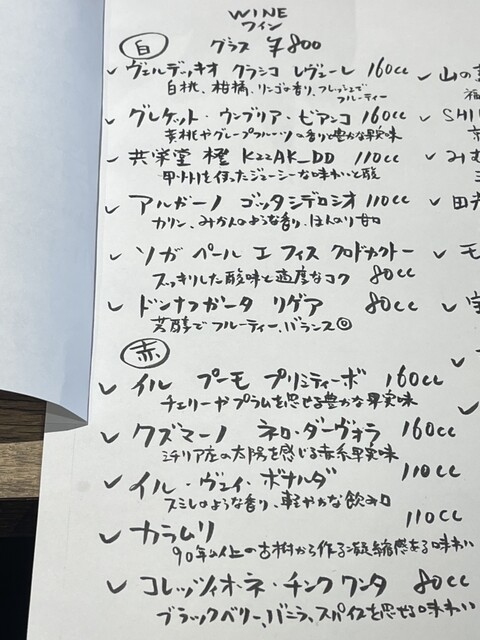 WINE
ワイン
白 グラス ¥800
✓ ヴェルディッキオ クラシコ レヴェーレ 160cc
白桃、柑橘、リンゴの香り、フレッシュで
フルーティー
✓ グレケット・ウンブリア・ビアンコ 160cc
黄桃やグレープフルーツの香りと豊かな果実味
✓ 共栄堂 橙 K22AK_DD 110cc
甲州を使ったジューシーな味わいと酸
✓ アルガーノ ゴッタシデロシオ 110cc
カリン、みかんのような香り、ほんのり甘口
✓ ソガ ペール エ フィス クロドカクトー
スッキリした酸味と適度なコク 80cc
✓ ドンナフガータ リゲア 80cc
芳醇でフルーティー、バランス◎
赤
✓ イル プーモ プリミティーボ 160cc
チェリーやプラムを思せる豊かな果実味
✓ クズマーノ ネロ・ダーヴォラ 160cc
シチリア産の太陽を感じる赤系果実味
✓ イル・ヴェイ・ボナルダ 110cc
スミレのような香り、軽やかな飲み口
✓ カラムリ 110cc
90年以上の古樹から作る凝縮感ある味わい
✓ コレッツィオーネ・チンクワンタ 80cc
ブラックベリー、バニラ、スパイスを思せる味わい
✓ 山の
✓ SHI
✓ みむ
✓ 田
✓ モ
✓